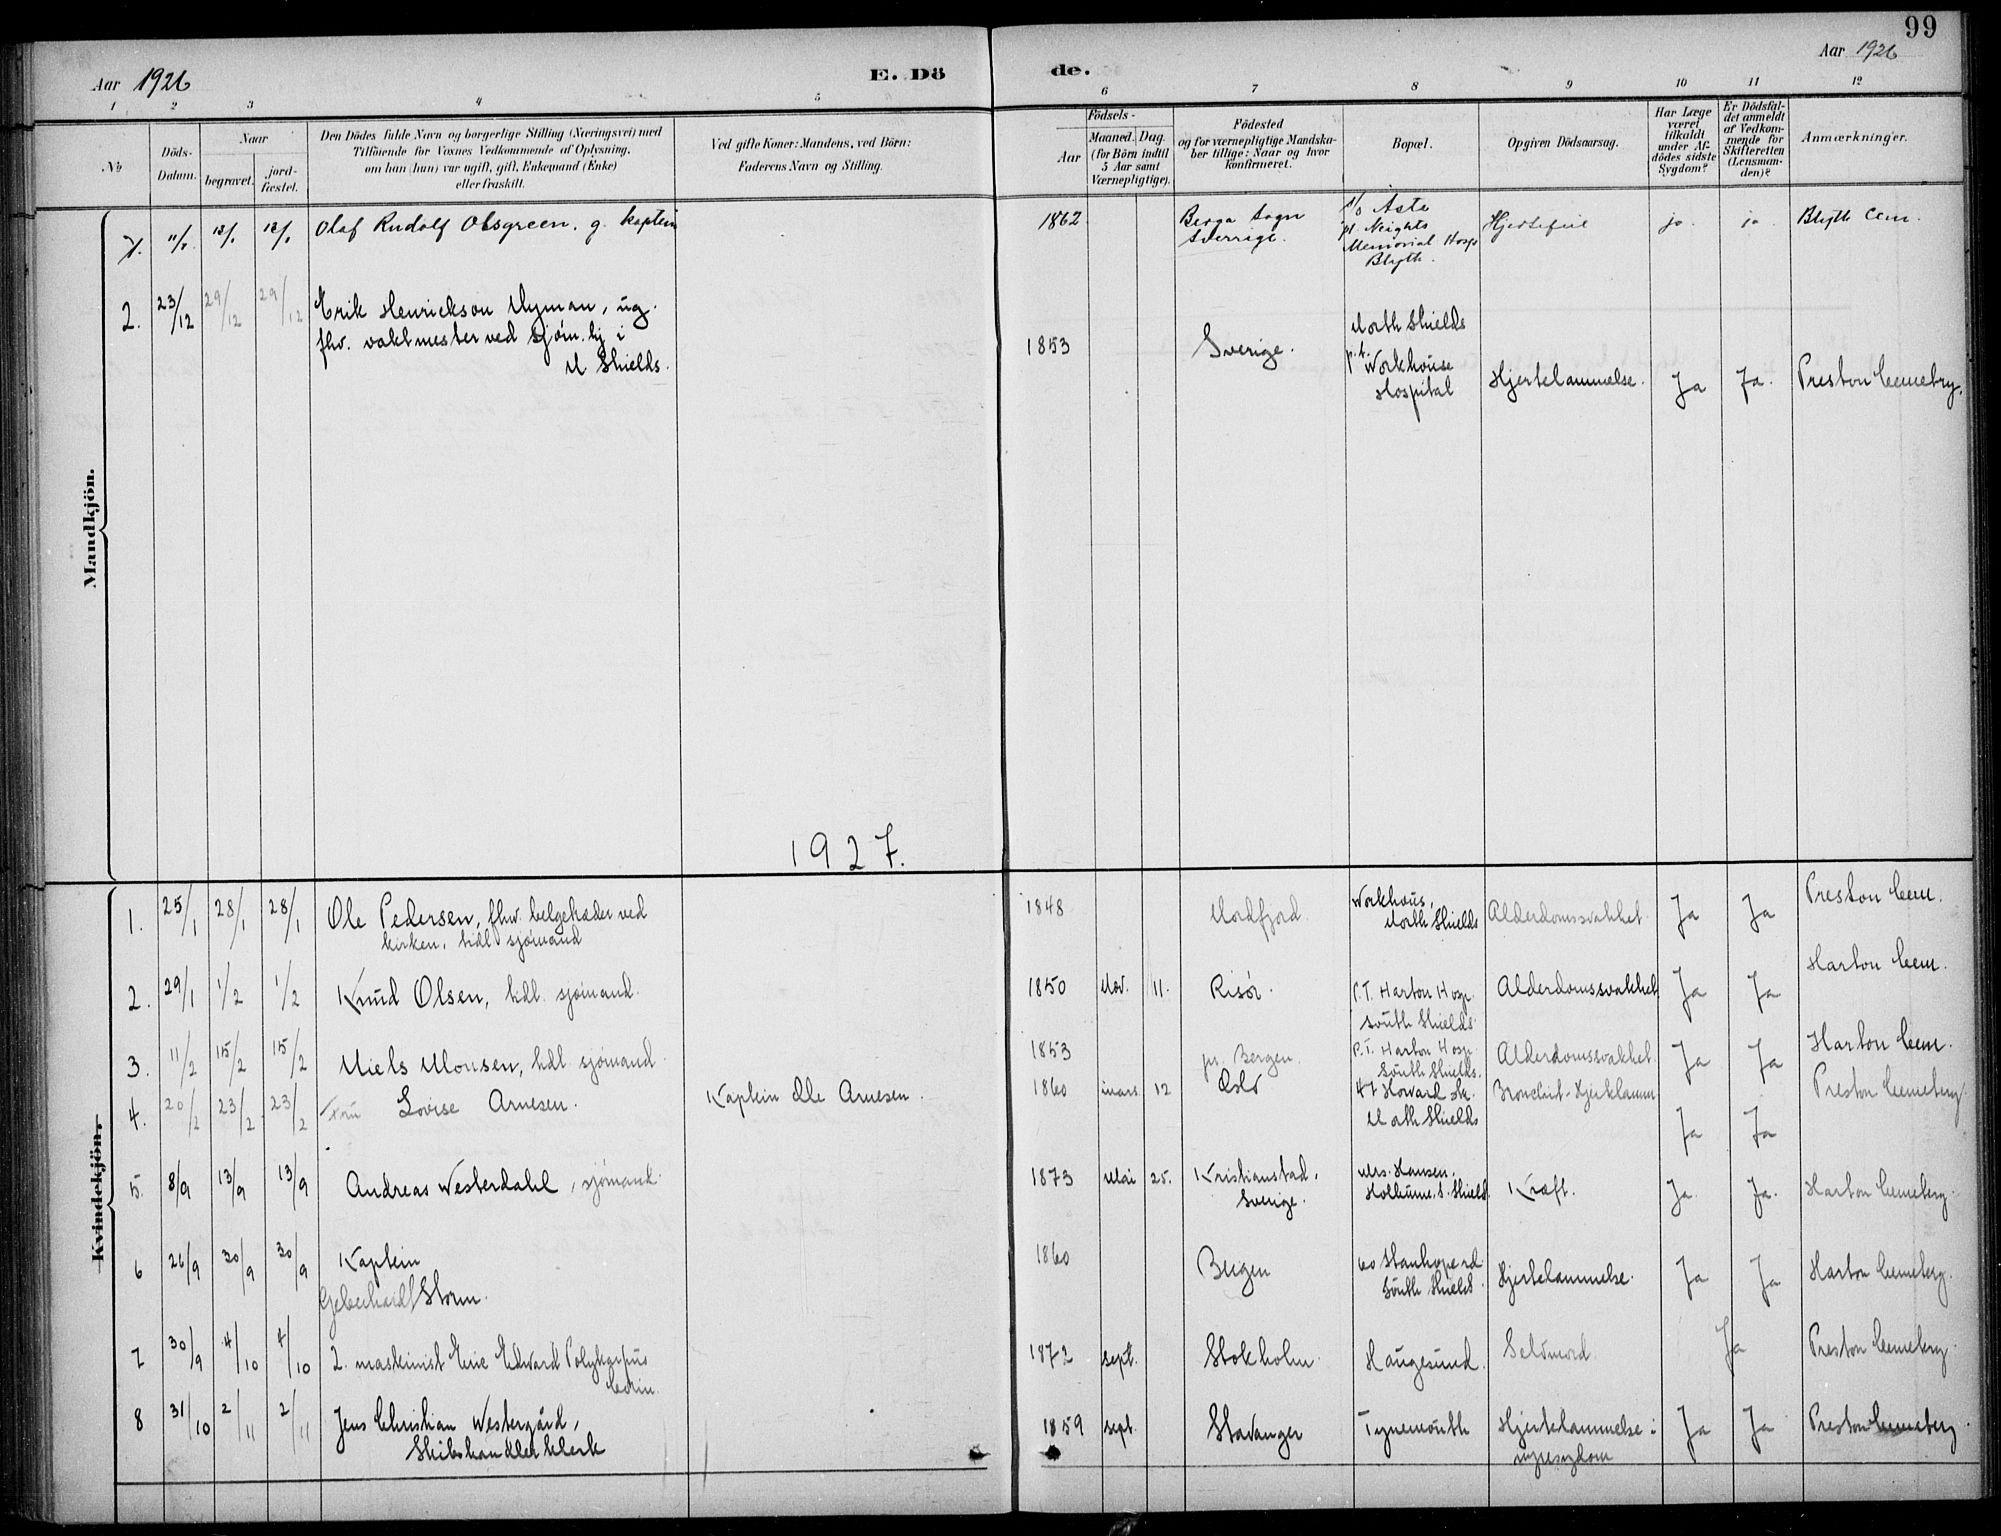 99
Aar 1926
E. Dö de.
Aar 1926
1 2 3 4 5 6 7 8 9 10 11 12
No
Döds-Datum.
Naar
begravet.
jord-fæstet.
Den Dödes fulde Navn og borgerlige Stilling (Næringsvei) med
Tilföiende for Voxnes Vedkommende af Oplysning,
om han (hun) var ugift, gift, Enkemand (Enke)
eller fraskilt.
Ved gifte Koner: Mandens, ved Börn:
Faderens Navn og Stilling.
Födsels-
Aar
Maaned. Dag.
(for Börn indtil
5 Aar samt
Værnepligtige).
Födested
og for værnepligtige Mandska-
ber tillige: Naar og hvor
konfirmeret.
Bopæl.
Opgiven Dödsaarsag.
Har Læge
været
tilkaldt
under Af-
dödes sidste
Sygdom?
Er Dödsfal-
det anmeldt
af Vedkom-
mende for
Skifteretten
(Lensman-
den)?
Anmærkninger.
Mandkjön.
1. 11/1 13/1 13/1 Olaf Rudolf Olsgreen. g. kaptein 1862 Berga Sogn Sverrige. S/S Asta pt. Knights Memorial Hosp Blyth. Hjertefeil ja. ja. Blyth Cem.
2. 23/12 29/12 29/12 Erik Henrickson Nyman, ug.
fhv. vaktmester ved sjøm. hj i
N Shields.
1853 Sverige. North Shields p.t. Workhouse Hospital Hjertelammelse. Ja Ja. Preston Cemetry.
1927.
Kvindekjön.
1. 25/1 28/1 28/1 Ole Pedersen, fhv. belgetræder ved
kirken, tidl. sjømand
1848 Nordfjord. Workhous, North Shields Alderdomssvakhet. Ja Ja Preston Cem.
2. 29/1 1/2 1/2 Knud Olsen, tidl. sjømand. 1850 Nov. 11. Risør. P.T. Harton Hosp. South Shields. Alderdomssvakhet Ja Ja Harton Cem.
3. 11/2 15/2 15/2 Niels Monsen, tidl. sjømand. 1853 pr. Bergen. P.T. Harton Hosp. South Shields. Alderdomssvakhet. Ja Ja Harton Cem.
4. 20/2 23/2 23/2 Fru Lovise Arnesen. Kaptein Ole Arnesen. 1860 mars 12 Oslo 47 Howard str. North Shields Bronchit-Hjertelamm Ja Ja Preston Cemetery.
5. 8/9 13/9 13/9 Andreas Westerdahl, sjømand. 1873 Mai 25. Kristianstad, Sverige. Mrs. Hansen. S. Shield. Kræft. Ja. Ja. Harton Cemetery.
6 26/9 30/9 30/9 Kaptein
Gebenhard Storm.
1860 Bergen 60 Stanhope rd South Shields. Hjertelammelse. Ja Ja Harton Cemetery.
7 30/9 4/10 4/10 2. maskinist Eric Edward Polykarpus
1872 sept. Stokholm. Haugesund. Selvmord. Ja Preston Cemetery.
8 31/10 2/11 2/11 Jens Christian Westergård,
Skibshandler klerk
1859 sept. Stavanger Tynemouth Hjertelammelse: nyresygdom Ja Ja Preston Cemetery